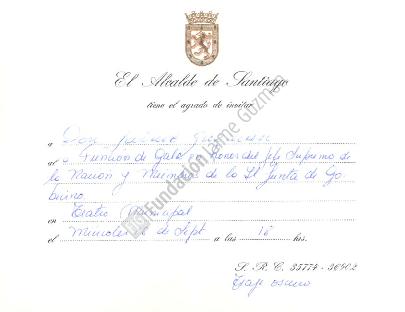 El Alcalde de Santiago
tiene el agrado de invitar
a Don Jaime Guzmán
al Función de Gala en Honor del Jefe Supremo de
la Nación y Miembros de la H. Junta de Go
bierno
Teatro Municipal
en
el Miércoles de Sept a las hrs.
S. R. C. 35774 - 36902
Traje oscuro
Fundación Jaime Guzmán